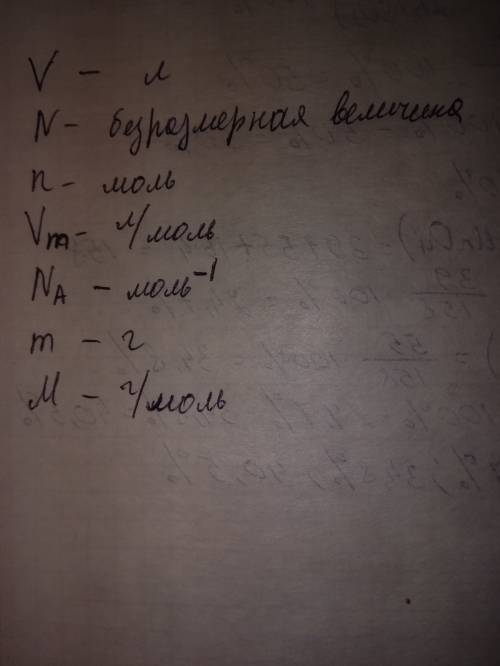 V – л
N – безразмерная величина
n – моль
Vm – л/моль
NA – моль⁻¹
m – г
M – г/моль